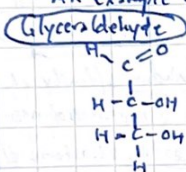 Glyceraldehyde
H O
C
H-C-OH
H-C-OH
H